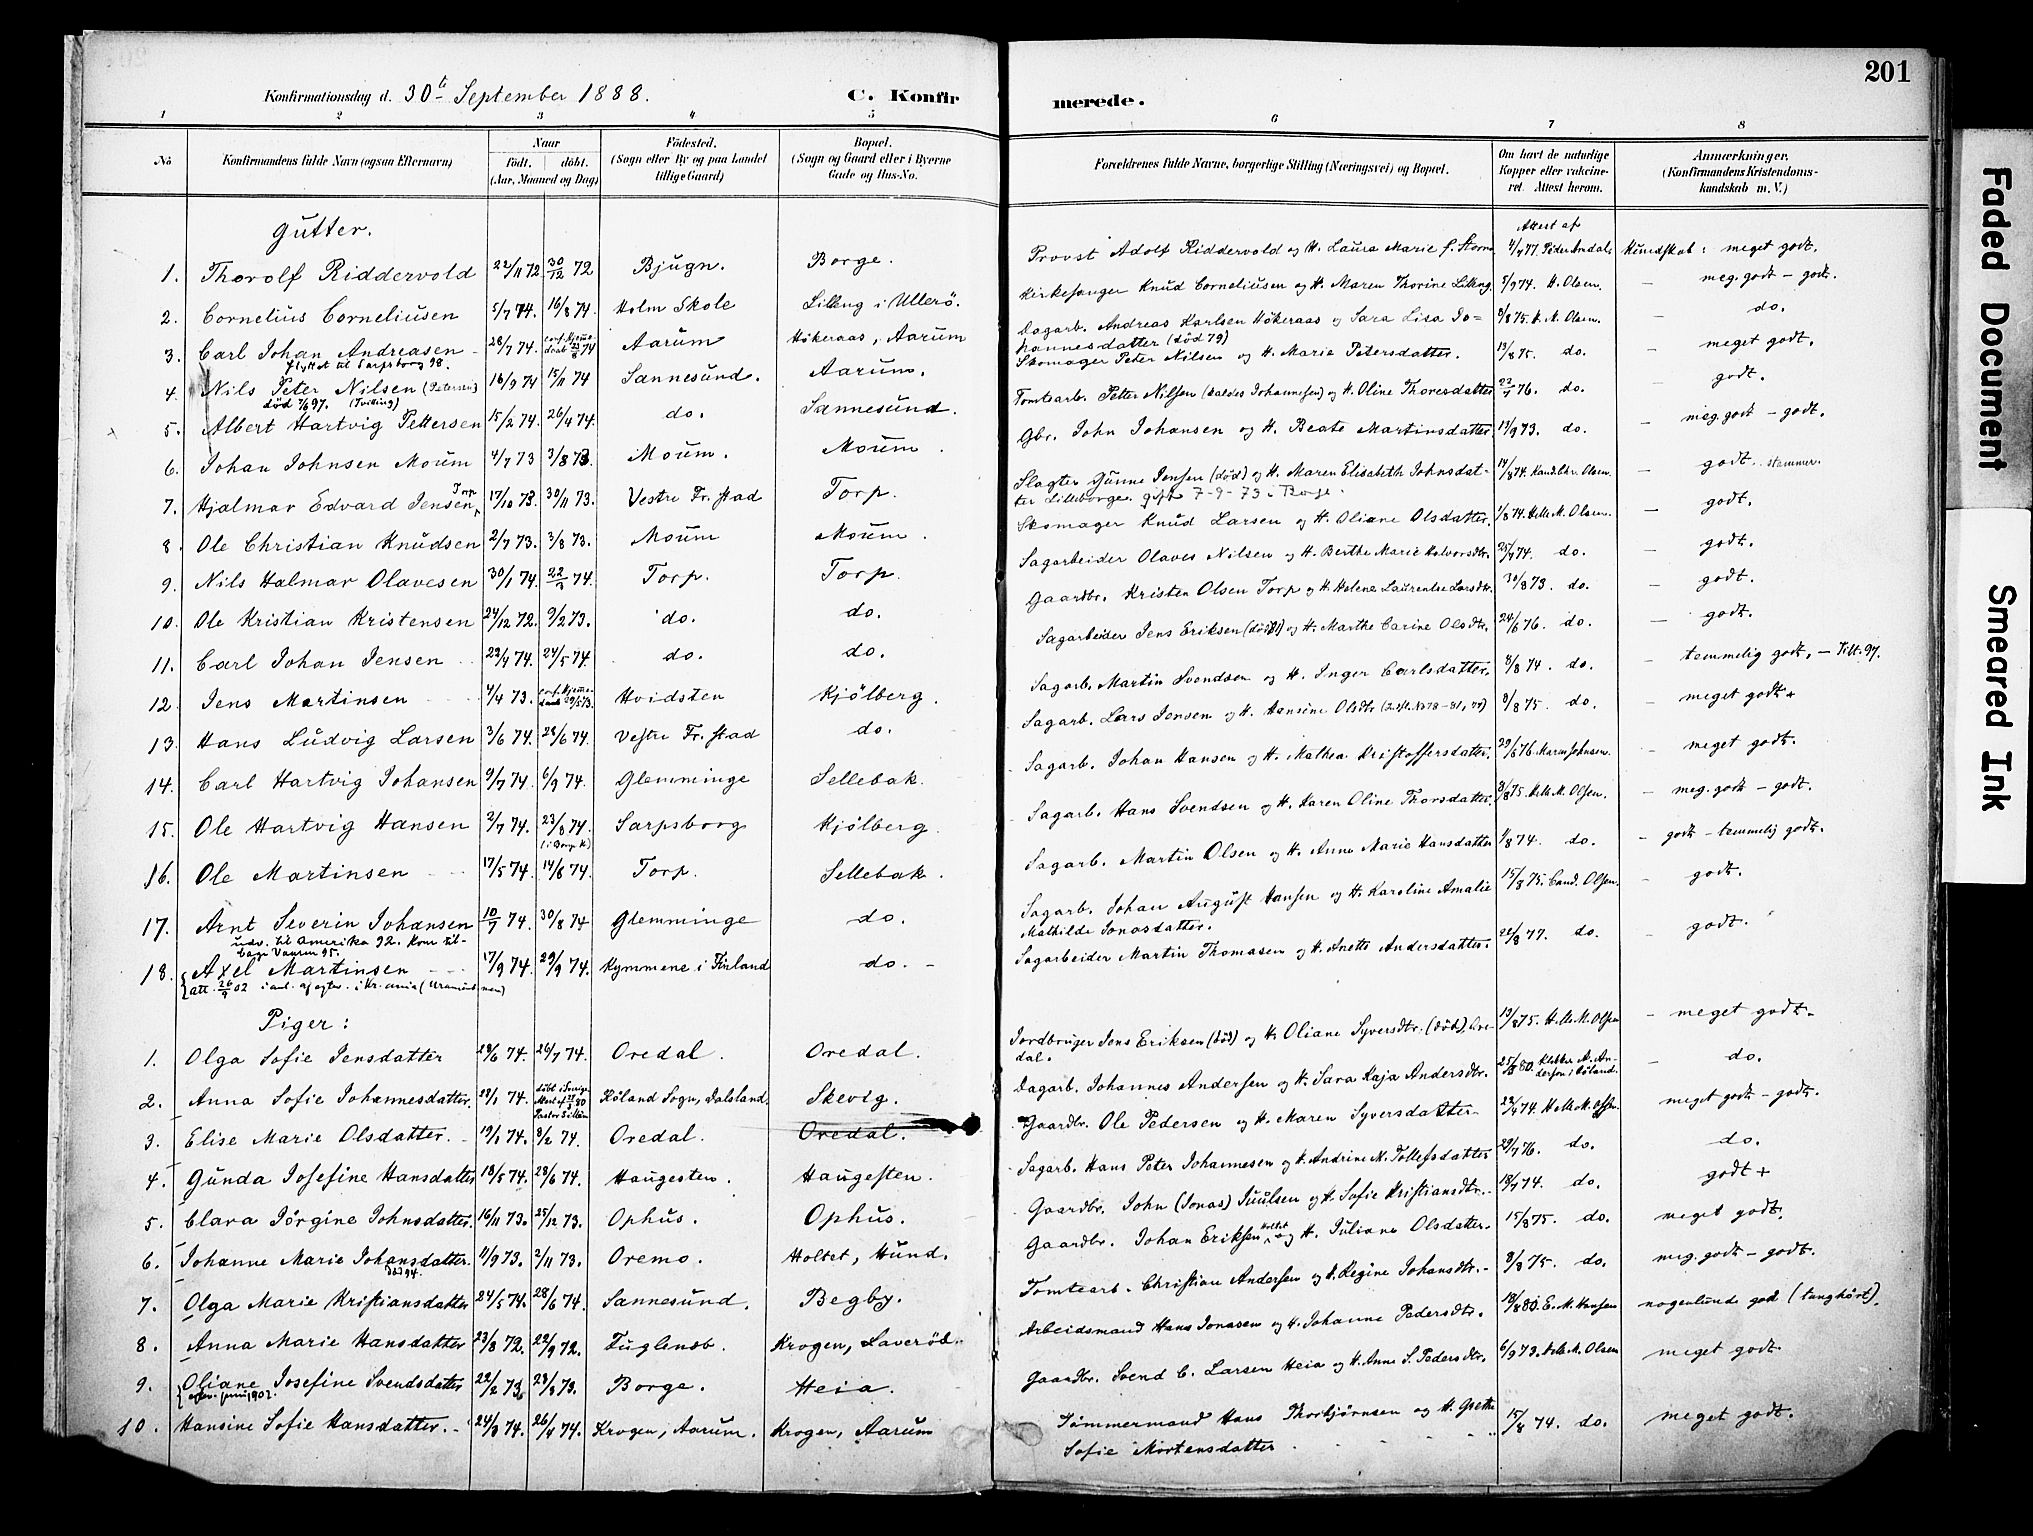 201
Konfirmationsdag d. 30te September 1888. C. Konfirmerede.
1 2 3 4 5 6 7 8
No Konfirmandens fulde Navn (ogsaa Efternavn) Naar født. døbt. (Aar, Maaned og Dag) Fødested. (Sogn eller By og paa Landet tillige Gaard) Bopæl. (Sogn og Gaard eller i Byerne Gade og Hus-No. Forældrenes fulde Navne, borgerlige Stilling (Næringsvei) og Bopæl. Om havt de naturlige Kopper eller vakcineret. Attest herom. Anmærkninger. (Konfirmandens Kristendomskundskab m. V.)
Gutter.
Attest af
1. Thorolf Riddervold 22/11 72 30/12 72 Bjugn. Borge. Provst Adolf Riddervold og H. Laura Marie f. Storm 4/4 77. Kundskab: meget godt.
2. Cornelius Corneliusen 5/7 74. 16/8 74. Holm Skole Lilleng i Ullerö. Kirkesanger Knud Corneliusen og H. Maren Thorine Lilleng. 5/9 74. H. Olsen. — meg. godt – godt.
3. Carl Johan Andreasen 28/7 74. Aarum Hökeraas, Aarum Dagarb. Andreas Karlsen Hökeraas og Sara Lisa Johannesdatter (död 79) 9/8 75. H. M. Olsen. — do.
flyttet til Sarpsborg 98.
4. Nils Peter Nilsen (Petersen) 16/9 74 15/11 74 Sannesund. Aarum. Skomager Peter Nilsen og H. Marie Petersdatter. 13/8 75. do. — meget godt.
död 7/6 97. (Tvilling)
5. Albert Hartvig Pettersen 15/2 74. 26/4 74. do. Sannesund. Tomtearb. Petter Nilsen (kaldes Johannesen) og H. Oline Thoresdatter 76. do. — godt.
6. Johan Johnsen Moum 4/7 73 3/8 73. Moum. Moum. Gbr. John Johansen og H. Beate Martinsdatter. 19/9 73. do. — meg. godt – godt.
7. Hjalmar Edvard Jensen Torp 17/10 73. 30/11 73. Vestre Fr.stad Torp. Slagter Gunne Jensen (död) og H. Maren Elisabeth Johnsdatter Lilleborge. gift 7-9-73 i Borge. 14/8 74. Kand. Chr. Olsen. — godt. stammer.
8. Ole Christian Knudsen 2/7 73. 3/8 73. Moum Moum. Skomager Knud Larsen og H. Oliane Olsdatter. 1/8 74. H. M. Olsen. — godt.
9. Nils Halmar Olavesen 30/1 74. 22/3 74. Torp. Torp. Sagarbeider Olaves Nilsen og H. Berthe Marie Halvorsdtr. 25/9 74. do. — godt.
10. Ole Kristian Kristensen 24/12 72. 9/2 73. do. do. Gaardbr. Kristen Olsen Torp og H. Helene Laurentse Larsdtr. 30/8 73. do. — godt.
11. Carl Johan Jensen 22/4 74. 24/5 74. do. do. Sagarbeider Jens Eriksen (död) og H. Marthe Carine Olsdtr. 24/6 76. do. — godt.
12. Jens Martinsen 4/4 73. Hvidsten Kjölberg. Sagarb. Martin Svendsen og H. Inger Carlsdatter. 8/8 74. do. — temmelig godt. – Tilt. 97.
13. Hans Ludvig Larsen 3/6 74. 28/6 74. Vestre Fr.stad do. Sagarb. Lars Jensen og H. Hansine Olsdtr 9/8 75. do. — meget godt+
14. Carl Hartvig Johansen 9/7 74. 6/9 74. Glemminge Sellebak. Sagarb. Johan Hansen og H. Mathea Kristoffersdatter. 29/6 76. Maren Johnsen. — meget godt.
15. Ole Hartvig Hansen 2/7 74. 23/8 74. (i Borge K.) Sarpsborg Kjölberg. Sagarb. Hans Svendsen og H. Karen Oline Thorsdatter. 3/8 75. H. M. Olsen. — meg. godt – godt.
16. Ole Martinsen 17/5 74. 14/6 74. Torp. Sellebak. Sagarb. Martin Olsen og H. Anne Marie Hansdatter 1/8 74. do. — godt – temmelig godt.
17. Arnt Severin Johansen 10/7 74. 30/8 74 Glemminge do. Sagarb. Johan August Hansen og H. Karoline Amalie Mathilde Jonasdatter. 15/8 75. Cand. Olsen. — godt.
udv. til Amerika 92. Kom tilbage Vaaren 95.
18. Axel Martinsen 17/9 74. 29/9 74. Kymmene i Finland do. Sagarbeider Martin Thomasen og H. Anette Andersdatter. 22/8 77. do. — godt.
att. 26/9 02
Piger:
1. Olga Sofie Jensdatter 28/6 74. 26/7 74. Oredal. Oredal. Jordbruger Jens Eriksen (död) og H. Oliane Syversdtr. (död), Oredal. 13/8 75. H. M. Olsen — meget godt.
2. Anna Sofie Johannesdatter. 28/1 74. döbt i Sverige Köland Sogn, Dalsland. Skevig. Dagarb. Johannes Andersen og H. Sara Kaja Andersdtr. 80. Klokker A. Andersen i Köland. — do.
3. Elise Marie Olsdatter. 19/1 74. 8/2 74. Oredal. Oredal. Gaardbr. Ole Pedersen og H. Maren Syversdatter 74. H. M. Olsen. meget godt – godt.
4. Gunda Josefine Hansdatter 18/5 74. 28/6 74. Haugesten. Haugesten. Sagarb. Hans Peter Johannesen og H. Andrine M. Tollefsdatter 29/7 76. do. do.
5. Clara Jörgine Johnsdatter. 16/11 73. 25/12 73. Ophus. Ophus. Gaardbr. John (Jonas) Juulsen og H. Sofie Kristiansdtr. 18/7 74. do. godt +
6. Johanne Marie Johansdatter. 11/9 73. 2/11 73. Oremo. Holtet, Hund. Gaardbr. Johan Eriksen Holtet og H. Juliane Olsdatter. 15/8 75. do. meget godt.
död 94.
7. Olga Marie Kristiansdatter 24/5 74. 28/6 74. Sannesund. Begby. Tomtearb. Christian Andersen og H. Regine Johansdtr. 9/8 75. do. meg. godt – godt.
8. Anna Marie Hansdatter 23/8 72. 22/9 72. Fuglensb. Krogen, Laveröd. Arbeidsmand Hans Jonasen og H. Johanne Pedersdtr. 18/8 80. E. M. Hansen nogenlunde god (tunghört).
9. Oliane Josefine Svendsdatter 22/2 73. 23/3 73. Borge. Heia. Gaardbr. Svend C. Larsen Heia og H. Anne S. Pedersdtr. 6/9 73. H. M. Olsen meget godt
10. Hansine Sofie Hansdatter. 24/3 74. 26/4 74. Krogen, Aarum. Krogen, Aarum Tömmermand Hans Thorbjörnsen og H. Grethe Sofie Mortensdatter 15/8 74. do. meget godt.
Faded Document
Smeared Ink